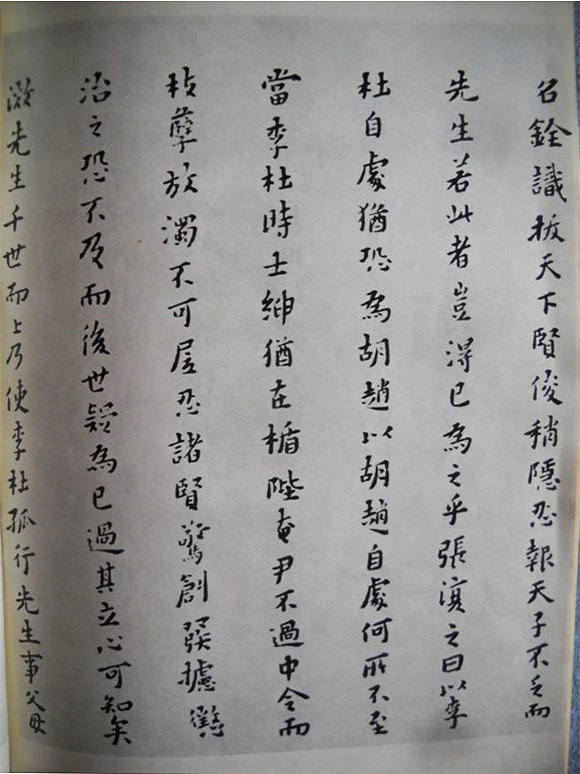 名銓識拔天下賢俊稍隱忍報天子不乏而
先生若此者豈得已為之乎張之曰以李
杜自處猶恐為胡趙以胡趙自處何所不至
當李杜時士紳猶在楯陛奄尹不過中令而
枝孽放濁不可居忍諸賢驚創攄懲
治之恐不及而後世疑為已過其立心可知矣
先生千世而上乃使李杜孤行先生事父母